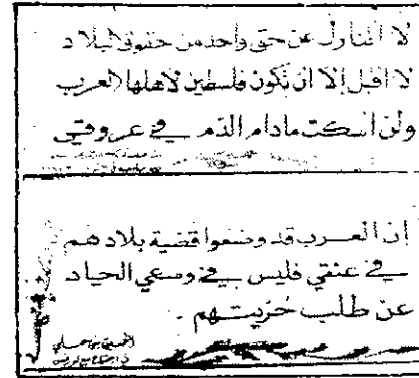 لا اتنازل عن حق واحد من حقوق البلاد
لا اقبل إلا ان تكون فلسطين لاهلها العرب
ولن اسكت مادام الدم في عروقي
إن العرب قد وضعوا قضية بلادهم
في عنقي فليس في وسعي الحياد
عن طلب حريتهم .
الحسين بن علي